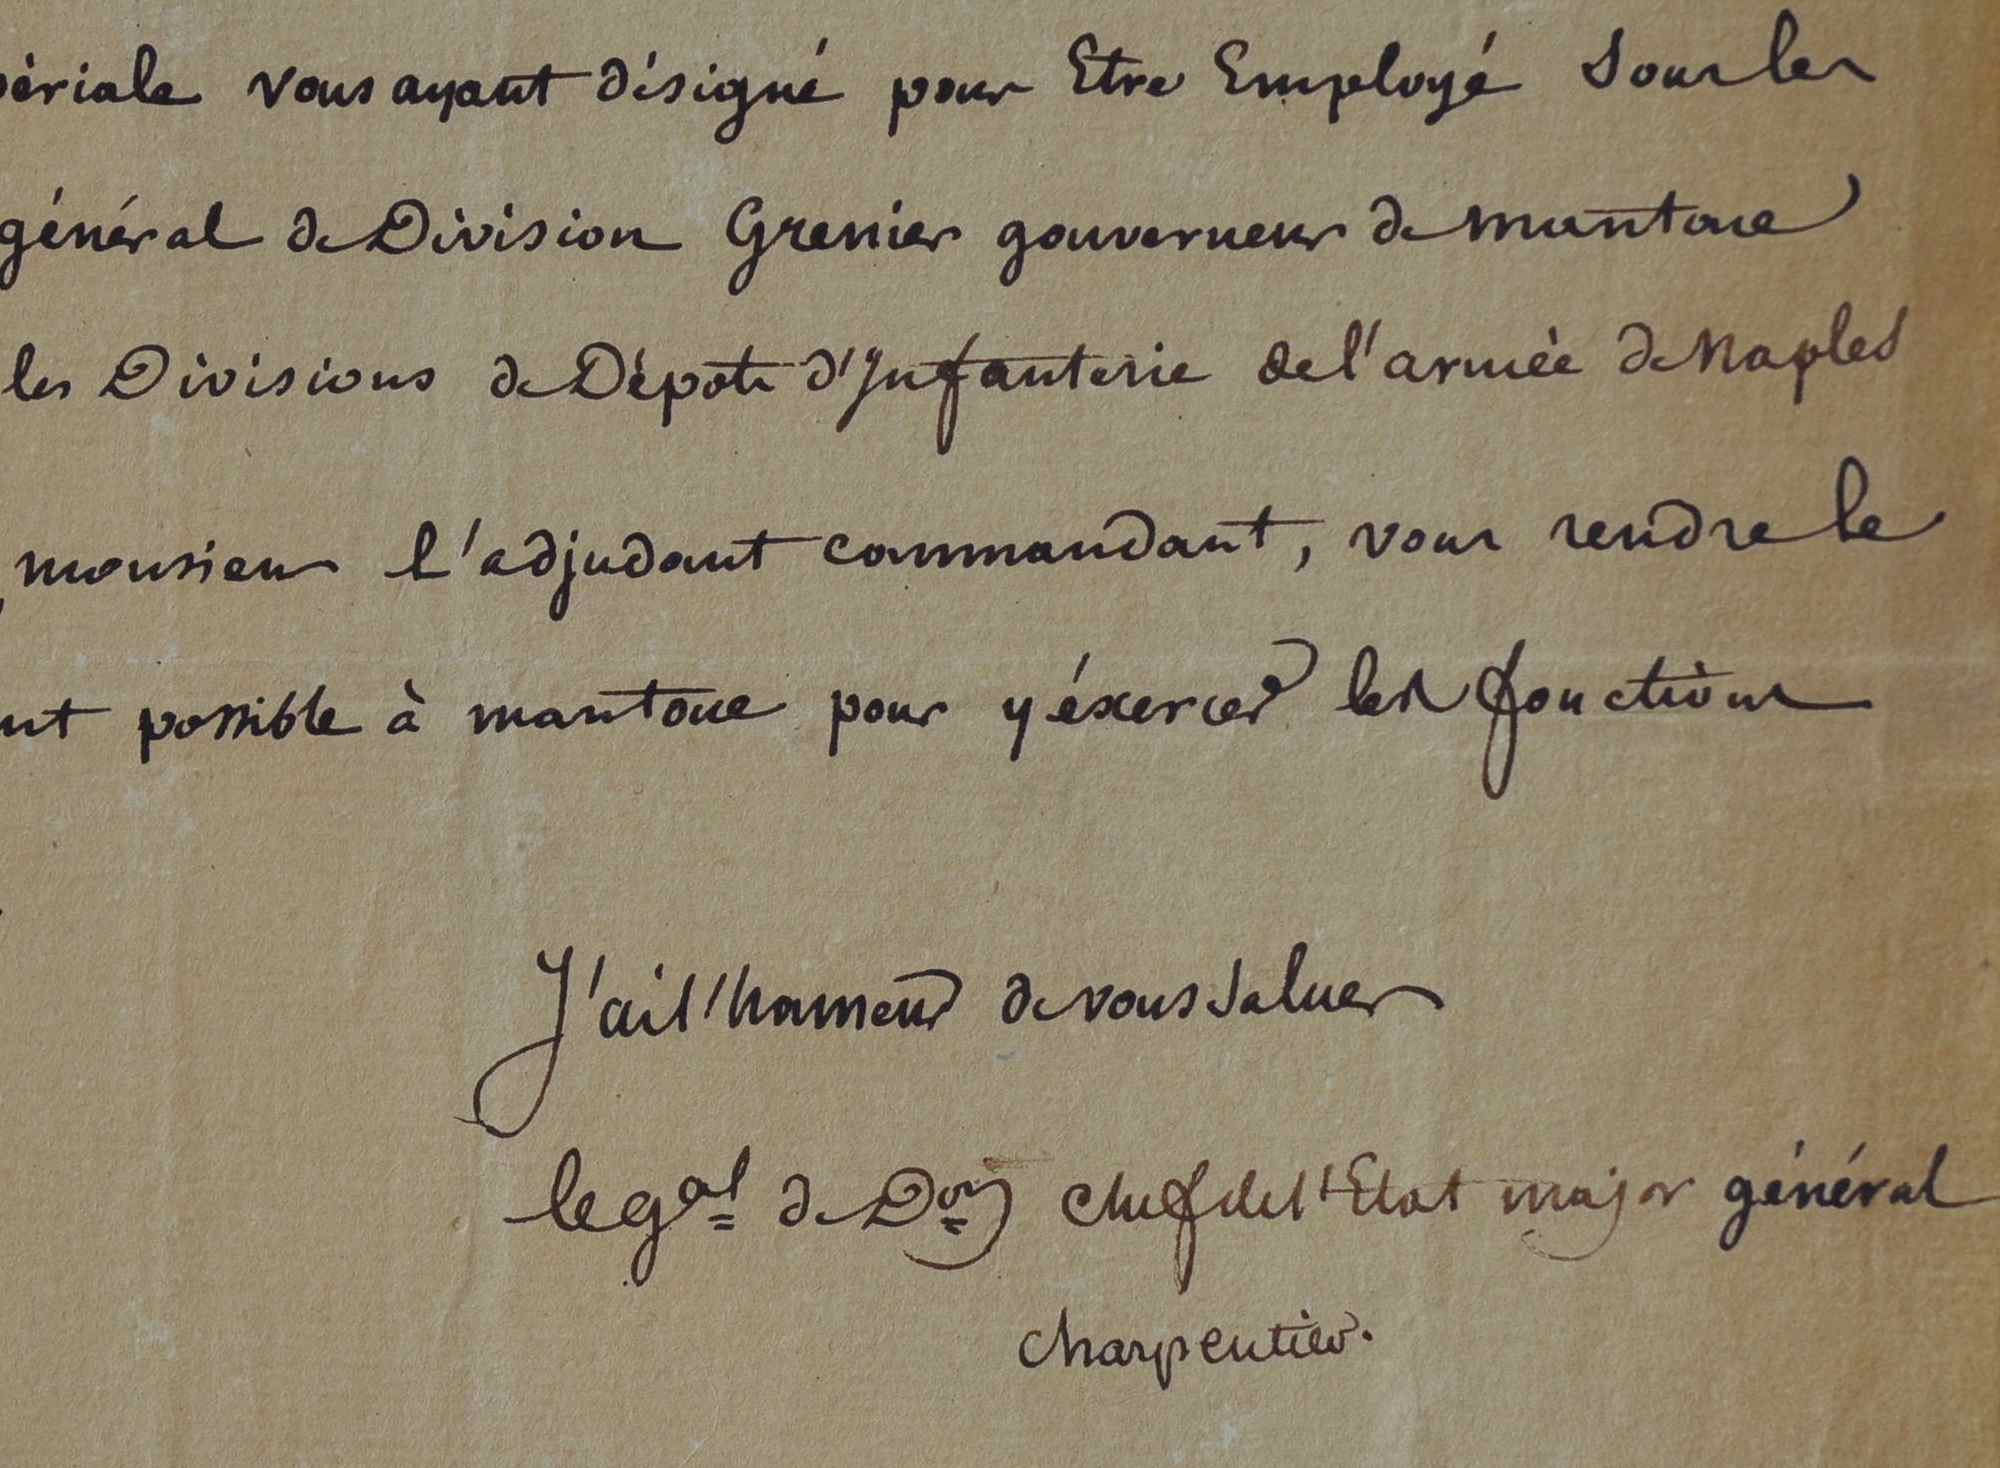 périale vous ayant désigné pour Etre Employé Sous les
général de Division Grenier gouverneur de mantoue
les Divisions de Dépots d'Infanterie de l'armée de Naples
, monsieur l'adjudant commandant, vous rendre le
nt possible à mantoue pour y éxercer les fonctions
J'ai l'honneur de vous Saluer
le gal de Don chef de l'Etat major général
Charpentier.